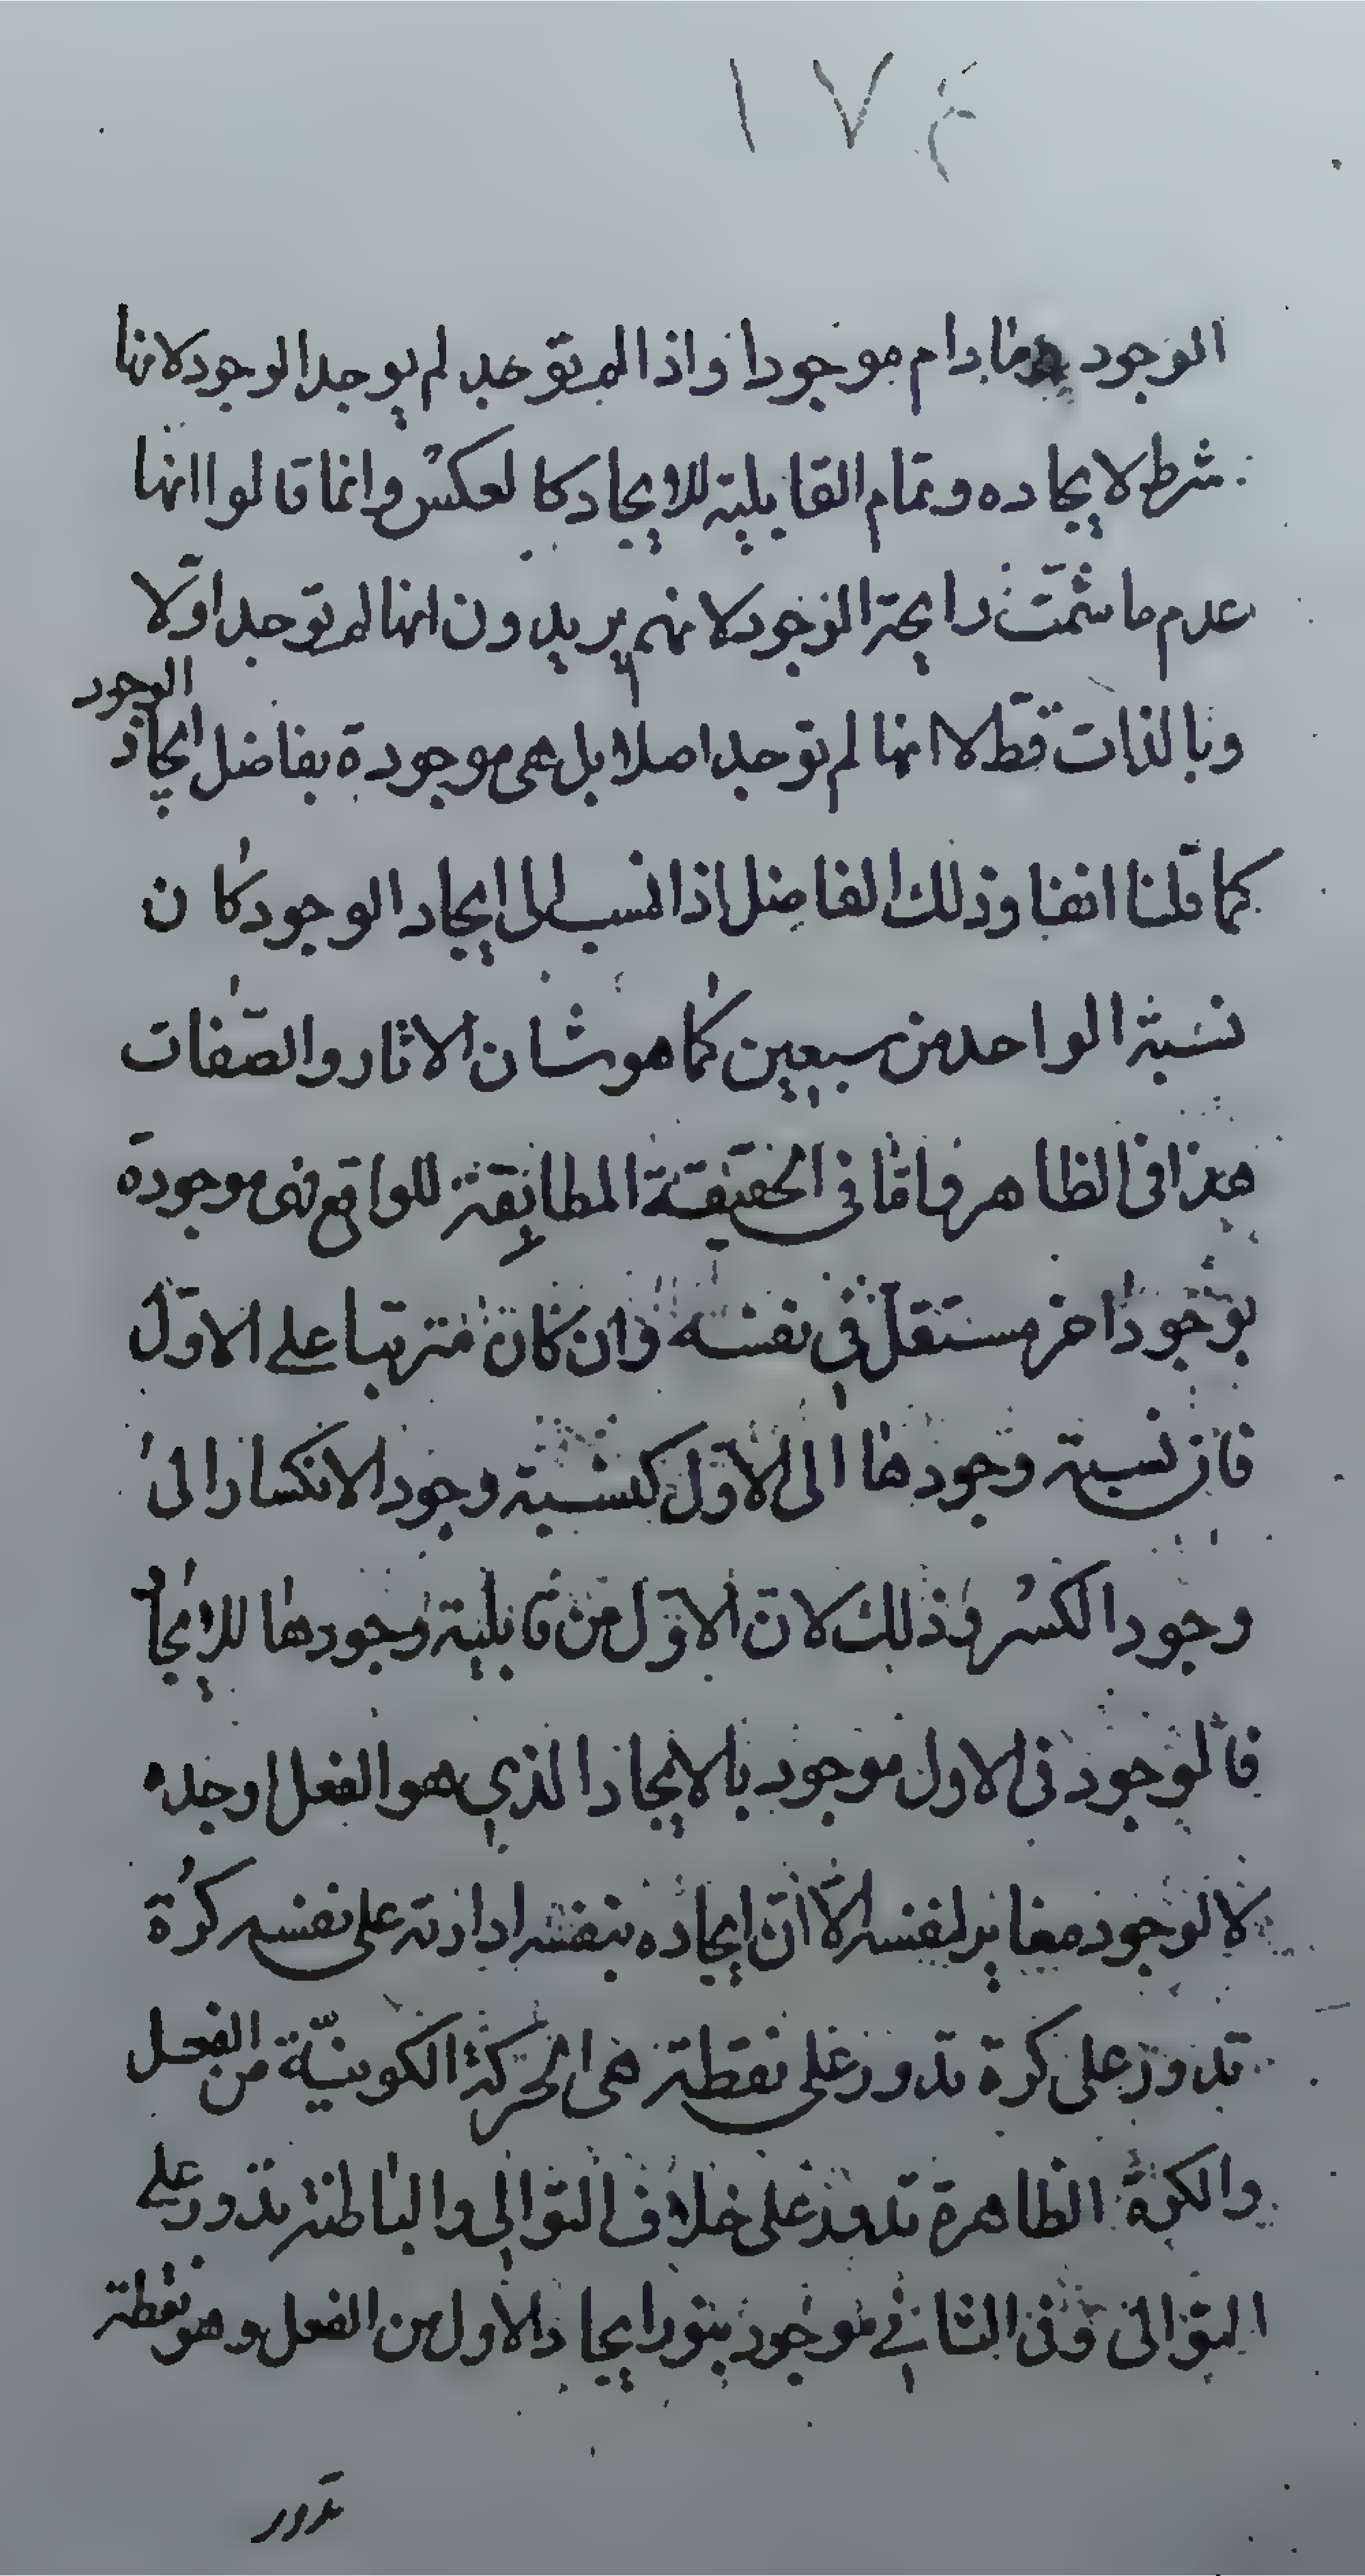 ١٧٤
الوجود ما دام موجودا واذا لم توجد لم يوجد الوجود لانها
شرط لايجاده وتمام القابلية للايجاد كالعكس وانما قالوا انها
عدم ما شمّت رايحة الوجود لانهم يريدون انها لم توجد اوّلا
وبالذات قطّ لا انها لم توجد اصلا بل هى موجودة بفاضل ايجاد الوجود
كما قلنا انفا وذلك الفاضل اذا نسب الى ايجاد الوجود كان
نسبة الواحد من سبعين كما هو شان الاثار والصّفات
هذا فى الظاهر وامّا فى الحقيقة المطابقة للواقع فهى موجودة
بوجود اخر مستقل في نفسه وان كان مترتبا على الاوّل
فان نسبة وجودها الى الاوّل كنسبة وجود الانكسار الى
وجود الكسر وذلك لانّ الاوّل من قابلية وجودها للايجاد
فالوجود فى الاول موجود بالايجاد الذي هو الفعل اوجده
لا لوجود مغاير لنفسه الّا انّ ايجاده بنفسه ادارته على نفسه كرة
تدور على كرة تدور على نقطة هى الحركة الكونيّة من الفعل
والكرة الظاهرة تدور على خلاف التوالي والباطنة تدور على
التوالى وفى الثاني موجود بنور ايجاد الاول من الفعل وهو نقطة
تدور